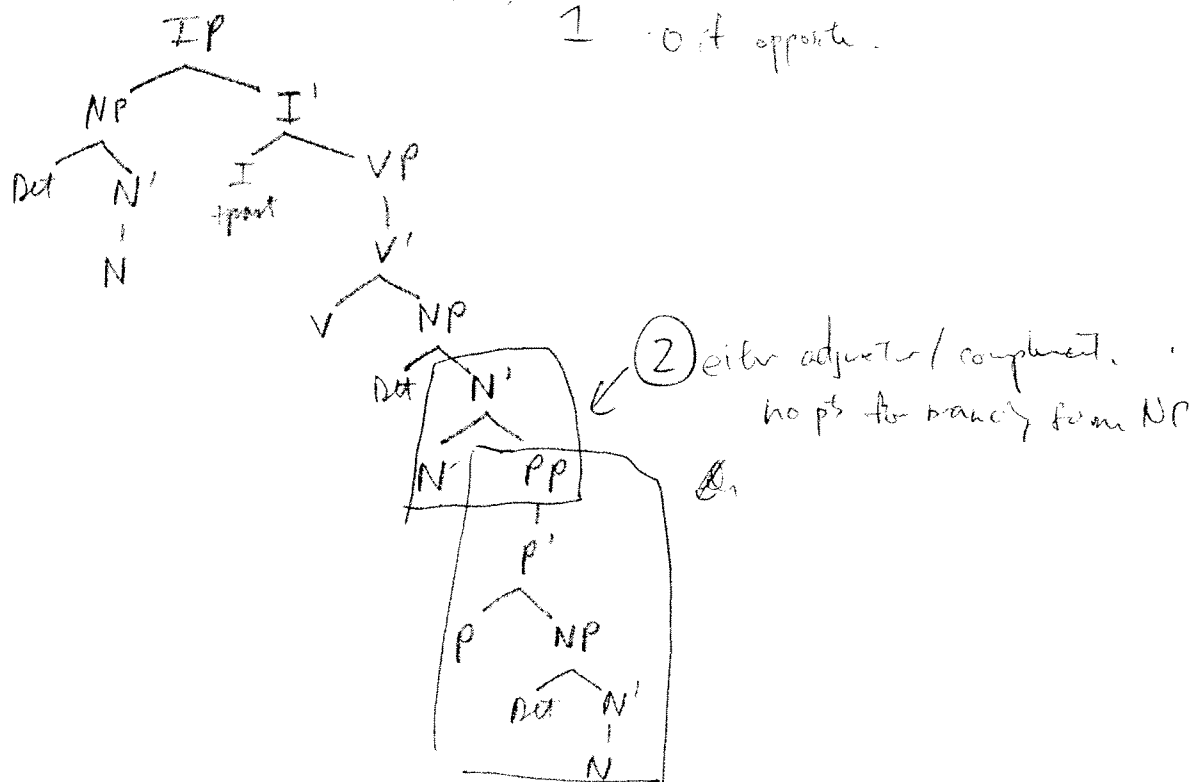 1 0 if opposite.
IP
NP I'
Det N' I VP
+past
N V'
V NP
Det N'
2 either adjunct / complement.
no pts for from NP
N PP
P'
P NP
Det N'
N